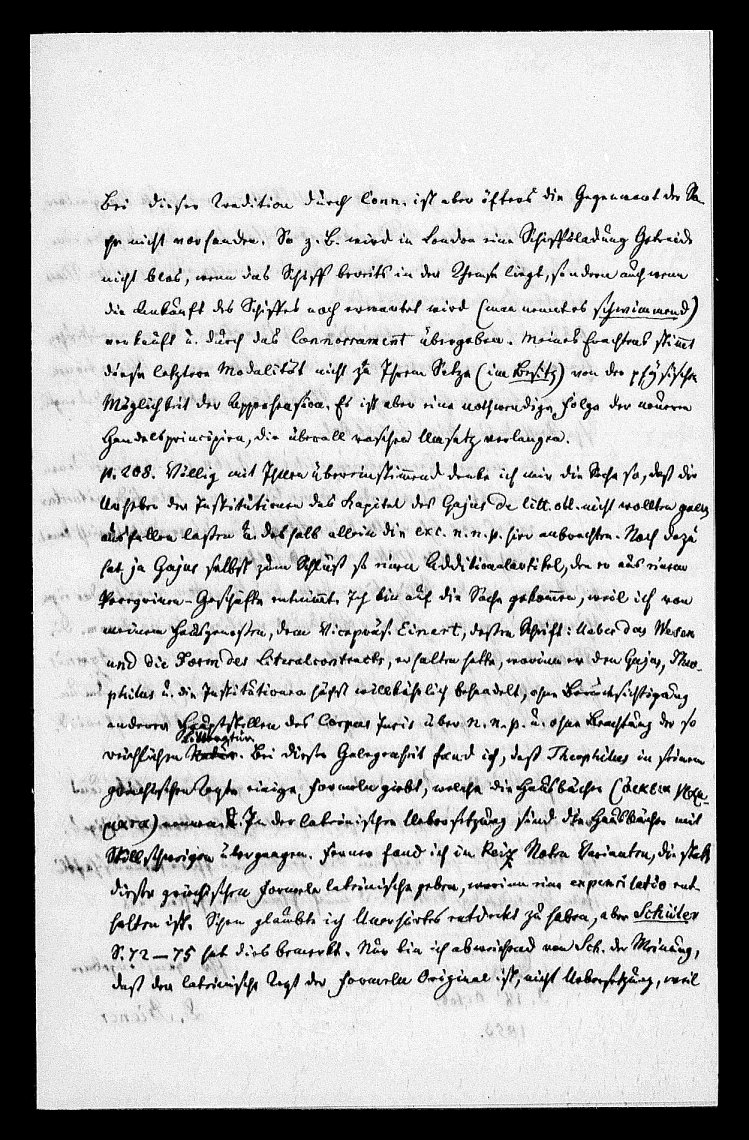 Bei dieser Tradition durch Conn. ist aber öfters die Gegenwart der Sa-
che nicht vorhanden. So z. B. wird in London eine Schiffsladung Getreide
nicht blos, wenn das Schiff bereits in der Themse liegt, sondern auch wenn
die Ankunft des Schiffes noch erwartet wird (man nennt es schwimmend)
verkauft u. durch das Connossament übergeben. Meines Erachtens stimmt
diese letztere Modalität nicht zu Ihrem Satze (im Besitz) von der physischen
Möglichkeit der Apprehension. Es ist aber eine nothwendige Folge der neueren
Handelsprincipien, die überall raschen Umsatz verlangen.
p. 208. Völlig mit Ihnen übereinstimmend denke ich mir die Sache so, daß die
Urheber der Institutionen das Kapitel des Gajus de litt. obl. nicht wollten ganz
ausfallen lassen u. deshalb allein die exc. n. n. p. hier anbrachten. Noch dazu
hat ja Gajus selbst zum Schluß so einen Additionalartikel, den er aus einem
Peregrinen-Geschäfte entnimmt. Ich bin auf die Sache gekommen, weil ich von
meinem Hausgenossen, dem Vicepräs. Einert, dessen Schrift: Ueber das Wesen
und die Form des Literalcontracts, erhalten hatte, worinn er den Gajus, Theo-
philus u. die Institutionen höchst willkührlich behandelt, ohne Berücksichtigung
anderer Hauptstellen des Corpus Juris über n. n. p. u. ohne Beachtung der so
reichlichen Litteratur. Bei dieser Gelegenheit fand ich, daß Theophilus in seinem
griechischen Texte einige Formeln giebt, welche die Hausbücher
In der lateinischen Uebersetzung sind die Hausbücher mit
Stillschweigen übergangen. Ferner fand ich in Reiz Noten Varianten, die statt
dieser griechischen Formeln lateinische geben, worinn eine expensilatio ent-
halten ist. Schon glaubte ich Unerhörtes entdeckt zu haben, aber Schüler
S. 72 — 75 hat dies bemerkt. Nur bin ich abweichend von Sch. der Meinung,
daß der lateinische Text der Formeln Original ist, nicht Uebersetzung, weil